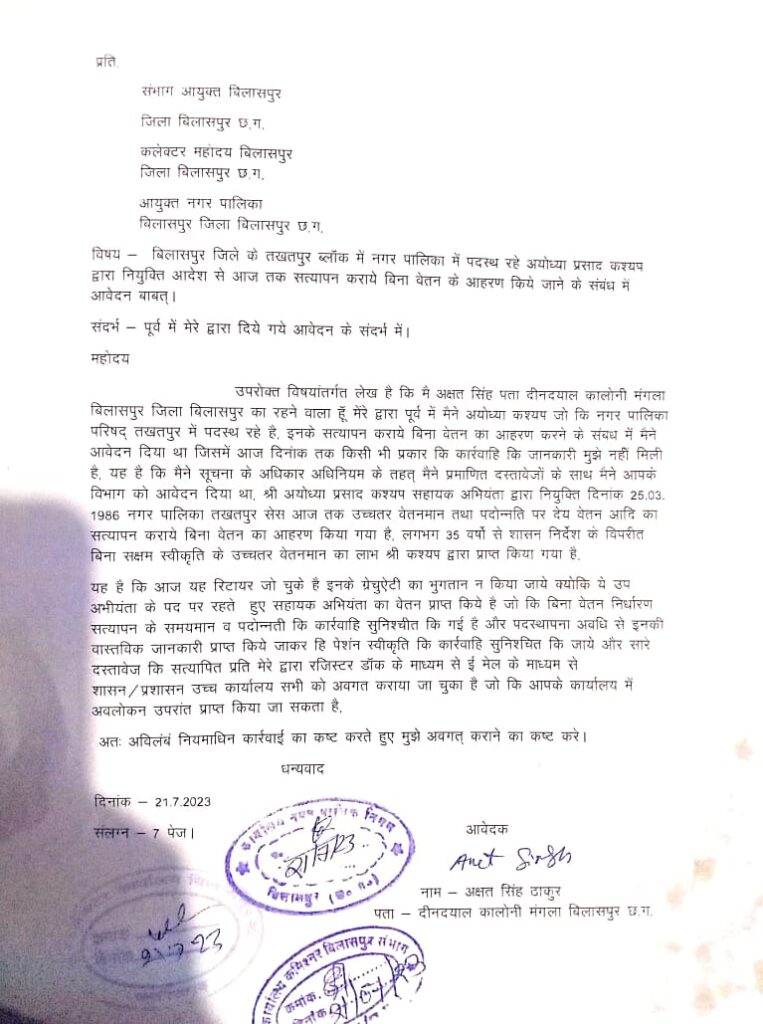 प्रति,
संभाग आयुक्त बिलासपुर
जिला बिलासपुर छ.ग.
कलेक्टर महोदय बिलासपुर
जिला बिलासपुर छ.ग.
आयुक्त नगर पालिका
बिलासपुर जिला बिलासपुर छ.ग.
विषय – बिलासपुर जिले के तखतपुर ब्लॉक में नगर पालिका में पदस्थ रहे अयोध्या प्रसाद कश्यप
द्वारा नियुक्ति आदेश से आज तक सत्यापन कराये बिना वेतन के आहरण किये जाने के संबंध में
आवेदन बाबत्।
संदर्भ – पूर्व में मेरे द्वारा दिये गये आवेदन के संदर्भ में।
महोदय
उपरोक्त विषयांतर्गत लेख है कि मै अक्षत सिंह पता दीनदयाल कालोनी मंगला
बिलासपुर जिला बिलासपुर का रहने वाला हूँ मेरे द्वारा पूर्व में मैने अयोध्या कश्यप जो कि नगर पालिका
परिषद् तखतपुर में पदस्थ रहे है, इनके सत्यापन कराये बिना वेतन का आहरण करने के संबध में मैने
आवेदन दिया था जिसमें आज दिनांक तक किसी भी प्रकार कि कार्रवाहि कि जानकारी मुझे नहीं मिली
है, यह है कि मैने सूचना के अधिकार अधिनियम के तहत् मैने प्रमाणित दस्तावेजों के साथ मैने आपके
विभाग को आवेदन दिया था, श्री अयोध्या प्रसाद कश्यप सहायक अभियंता द्वारा नियुक्ति दिनांक 25.03.
1986 नगर पालिका तखतपुर सेस आज तक उच्चतर वेतनमान तथा पदोन्नति पर देय वेतन आदि का
सत्यापन कराये बिना वेतन का आहरण किया गया है, लगभग 35 वर्षो से शासन निर्देश के विपरीत
बिना सक्षम स्वीकृति के उच्चतर वेतनमान का लाभ श्री कश्यप द्वारा प्राप्त किया गया है,
यह है कि आज यह रिटायर जो चुके है इनके ग्रेचुऐटी का भुगतान न किया जाये क्योकि ये उप
अभीयंता के पद पर रहते हुए सहायक अभियंता का वेतन प्राप्त किये है जो कि बिना वेतन निर्धारण
सत्यापन के समयमान व पदोन्नती कि कार्रवाहि सुनिश्चीत कि गई है और पदस्थापना अवधि से इनकी
वास्तविक जानकारी प्राप्त किये जाकर हि पेशंन स्वीकृति कि कार्रवाहि सुनिश्चित कि जाये और सारे
दस्तावेज कि सत्यापित प्रति मेरे द्वारा रजिस्टर डॉक के माध्यम से ई मेल के माध्यम से
शासन/प्रशासन उच्च कार्यालय सभी को अवगत कराया जा चुका है जो कि आपके कार्यालय में
अवलोकन उपरांत प्राप्त किया जा सकता है,
अतः अविलंबं नियमाधिन कार्रवाई का कष्ट करते हुए मुझे अवगत् कराने का कष्ट करे।
धन्यवाद
दिनांक – 21.7.2023
संलग्न – 7 पेज।
आवेदक
नाम – अक्षत सिंह ठाकुर
पता – दीनदयाल कालोनी मंगला बिलासपुर छ.ग.
बिलासपुर (छ० ग०)
कार्यालय कमिश्नर बिलासपुर संभाग
क्रमांक